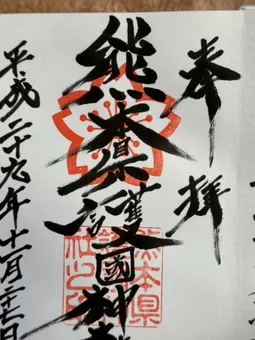 奉拝
熊本県護國神社
平成二十九年十一月二十七日
熊本県護國神社之印